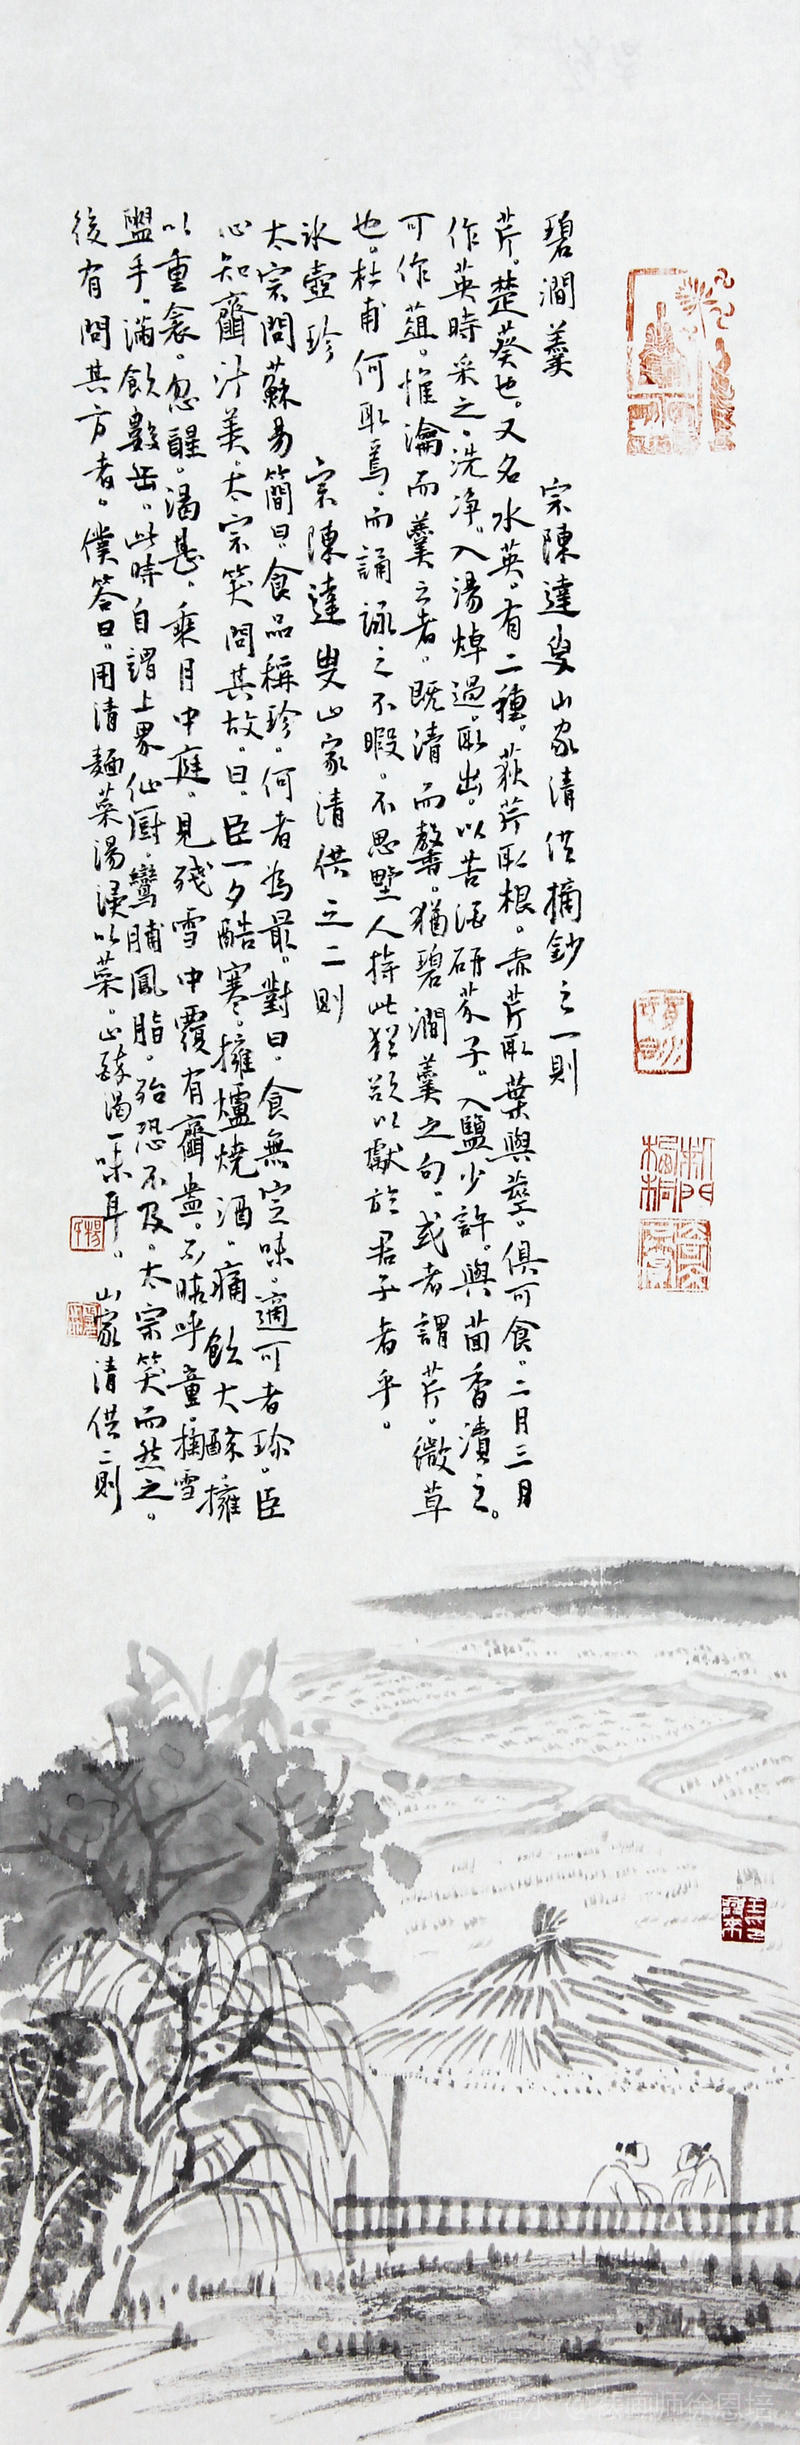 碧澗羹　宗陳達叟山家清供摘鈔之一則
芹。楚葵也。又名水英。有二種。荻芹取根。赤芹取葉與莖。俱可食。二月三月
作英時采之。洗净。入湯焯過。取出。以苦酒研芥子。入鹽少許。與茴香漬之。
可作葅。惟瀹而羹之者。既清而馨。猶碧澗羹之句。或者謂芹。微草
也。杜甫何取焉。而誦詠之不暇。不思野人持此猶欲以獻於君子者乎。
冰壺珍　宗陳達叟山家清供之二則
太宗問蘇易簡曰。食品稱珍。何者為最。對曰。食無定味。適可者珍。臣
心知虀汁美。太宗笑問其故。曰。臣一夕酷寒。擁爐燒酒。痛飲大醉。擁
以重衾。忽醒。渴甚。乘月中庭。見殘雪中覆有虀盎。不暇呼童。掬雪
盥手。滿飲數缶。此時自謂上界仙厨。鸞脯鳳脂。殆恐不及。太宗笑而然之。
後有問其方者。僕答曰。用清麵菜湯浸以菜。止醉渴一味耳。山家清供二則